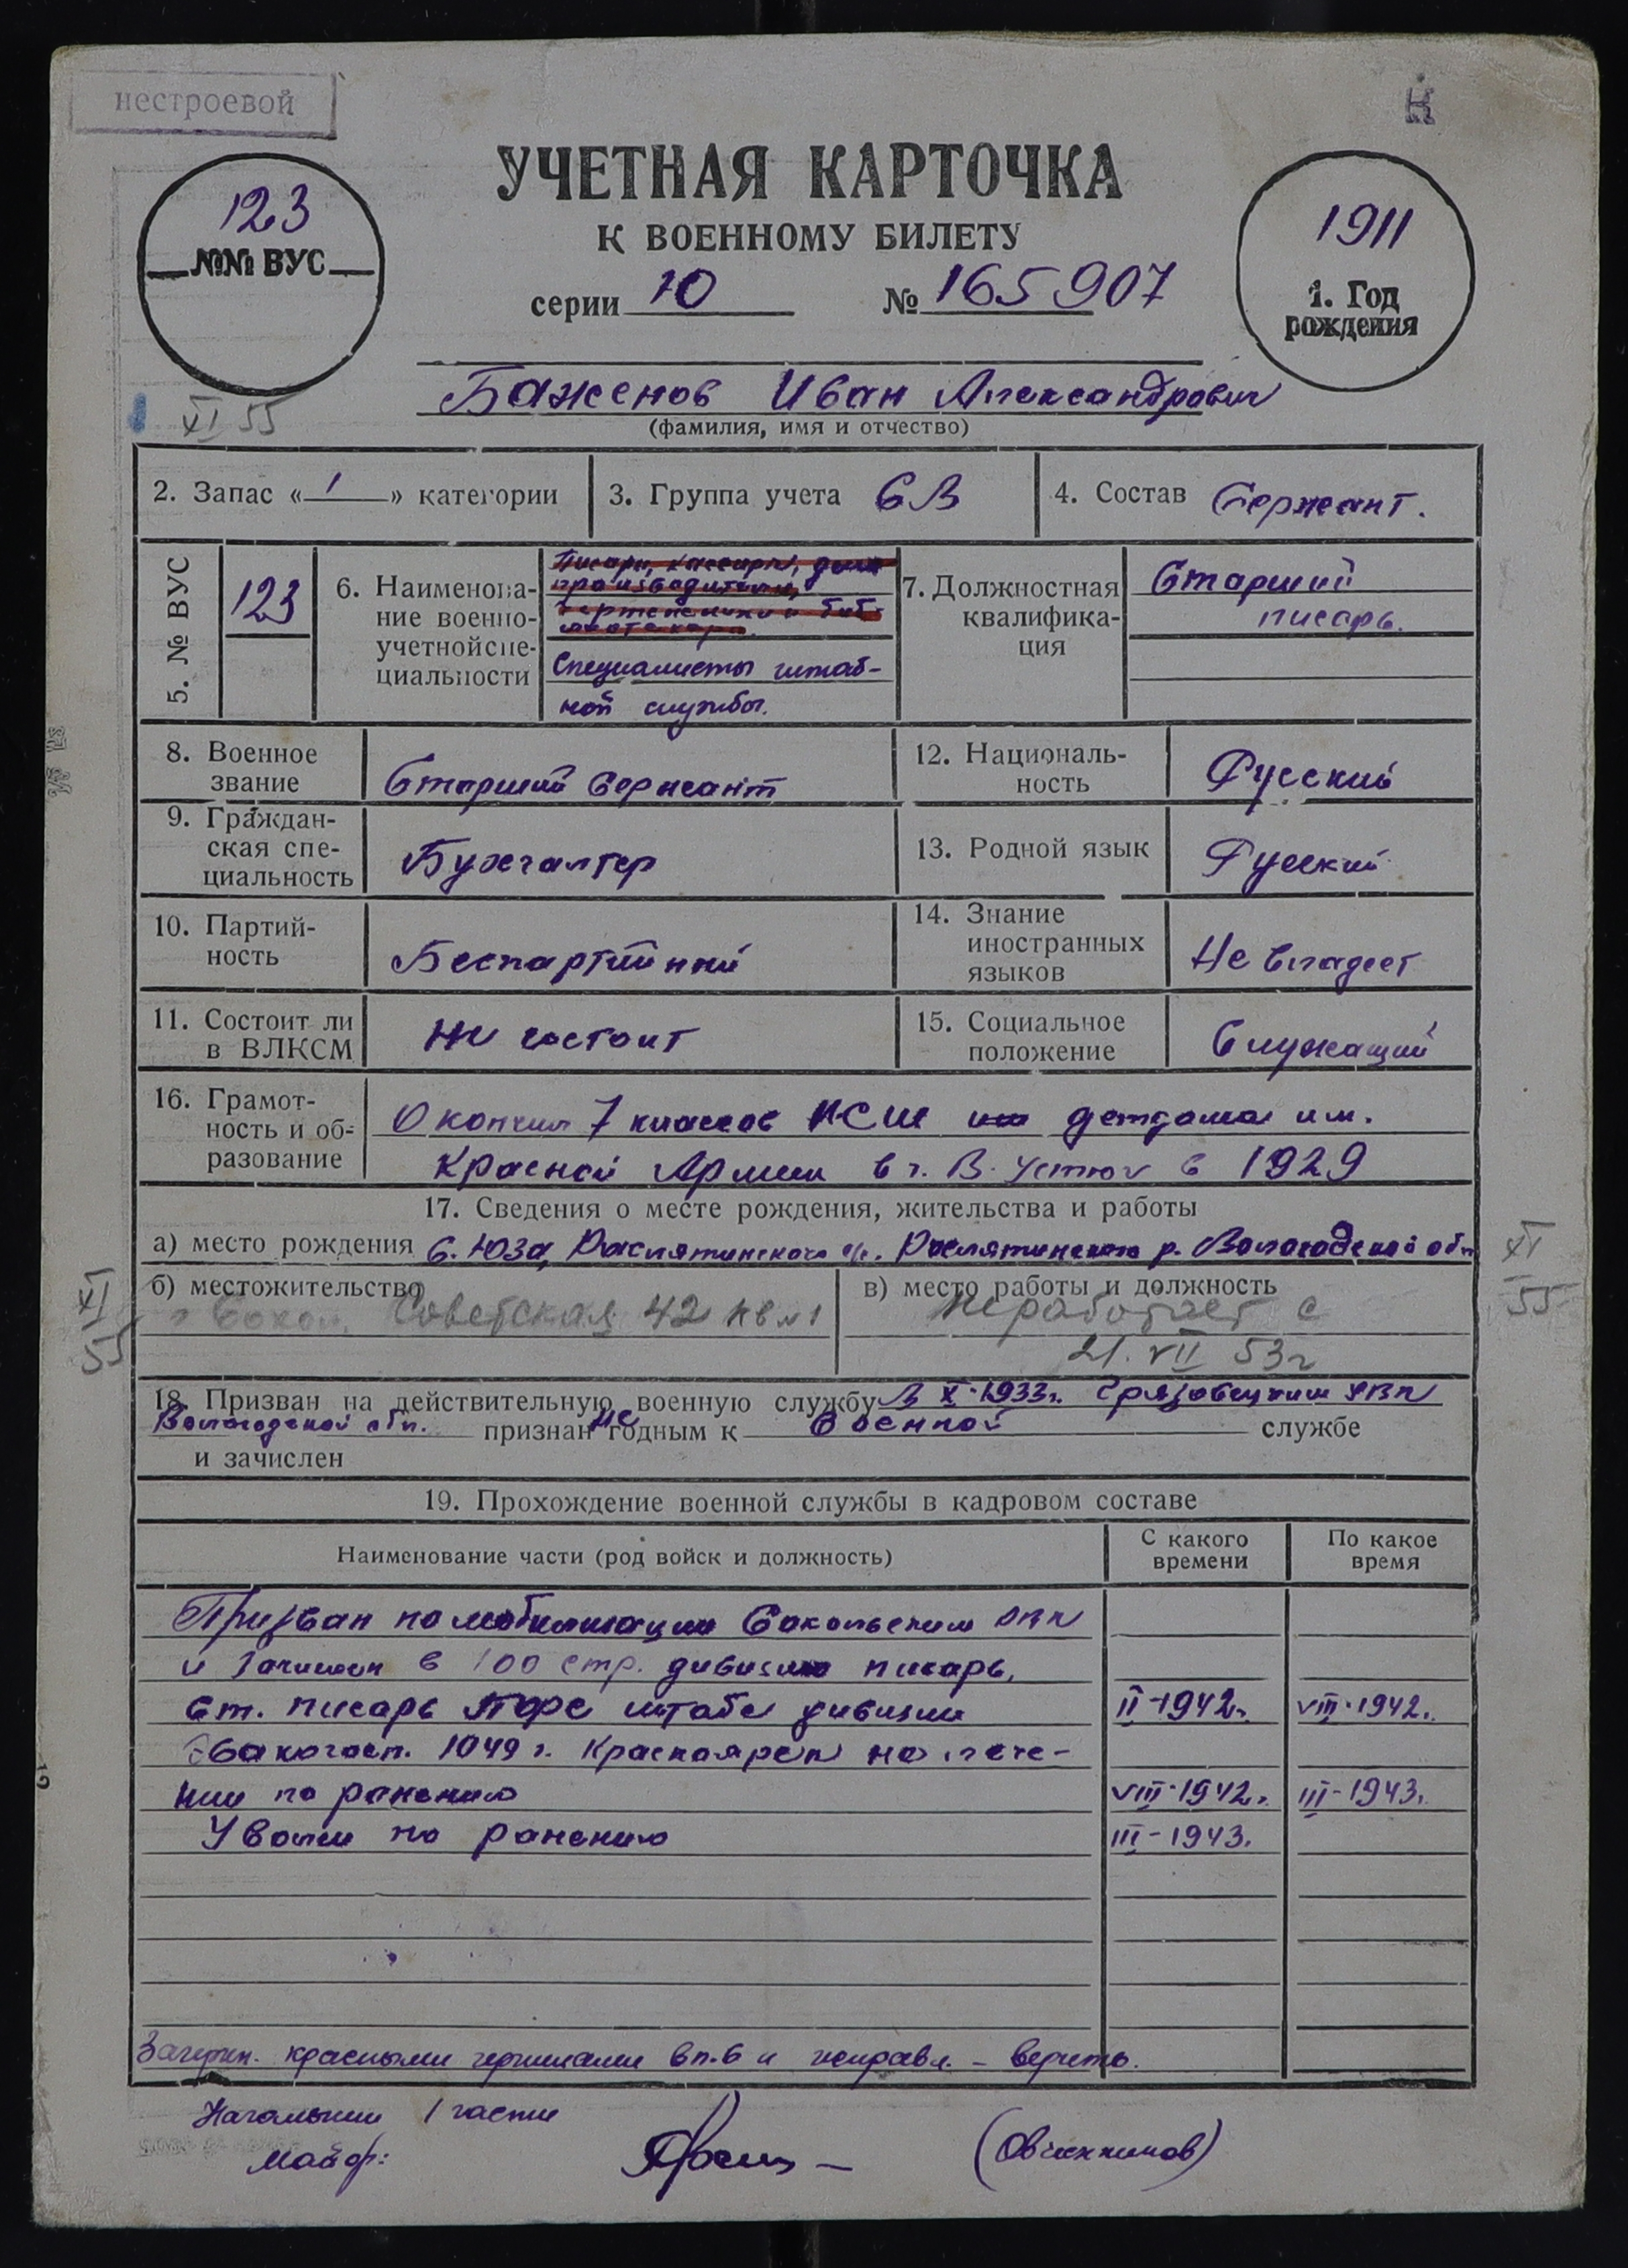 нестроевой
К
УЧЕТНАЯ КАРТОЧКА
К ВОЕННОМУ БИЛЕТУ
серии Ю № 165907
123
№№ ВУС
1911
1. Год
рождения
Баженов Иван Александрович
(фамилия, имя и отчество)
XI 55
2. Запас « 1 » категории
3. Группа учета СВ
4. Состав Сержант.
5. № ВУС
123
6. Наименова-
ние военно-
учетной спе-
циальности
Писари, кассиры, дело
производители,
чертежники и биб-
лиотекари.
Специалисты штаб-
ной службы.
7. Должностная
квалифика-
ция
Старший
писарь.
8. Военное
звание
Старший сержант
12. Националь-
ность
Русский
9. Граждан-
ская спе-
циальность
Бухгалтер
13. Родной язык
Русский
10. Партий-
ность
Беспартийный
14. Знание
иностранных
языков
Не владеет
11. Состоит ли
в ВЛКСМ
Не состоит
15. Социальное
положение
Служащий
16. Грамот-
ность и об-
разование
Окончил 7 классов НСШ детдома им.
Красной Армии в г. В. Устюг в 1929
17. Сведения о месте рождения, жительства и работы
а) место рождения с. Юза, Раслятинского с/с. Раслятинского р. Вологодской обл
XI
55
б) местожительство
Советская 42 кв №1
в) место работы и должность
Неработает с
21. VII 53г
XI
55
18. Призван на действительную военную службу В X-1933г. Грязовецким РВК
Вологодской обл. признан не годным к военной службе
и зачислен
19. Прохождение военной службы в кадровом составе
Наименование части (род войск и должность)
С какого
времени
По какое
время
Призван по мобилизации Сокольским РВК
и зачислен в 100 стр. дивизию писарь,
Ст. писарь штаба дивизии II-1942г. VIII-1942г.
Эвакогосп. 1049 г. Красноярск на лече-
нии по ранению VIII-1942г. III-1943г.
Уволен по ранению III-1943.
Зачеркн. красными чернилами в п.6 и исправл. - верить.
Начальник 1 части
Майор:
(Овчинников)